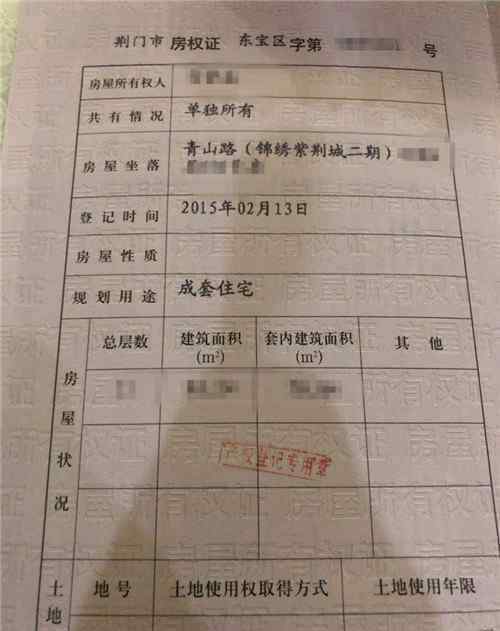 荆门市 房权证 东宝区 字第 号
房屋所有权人
共有情况 单独所有
房屋坐落 青山路（锦绣紫荆城二期）
登记时间 2015年02月13日
房屋性质
规划用途 成套住宅
房屋状况
总层数 建筑面积(m²) 套内建筑面积(m²) 其他
产权登记专用章
土地 地号 土地使用权取得方式 土地使用年限